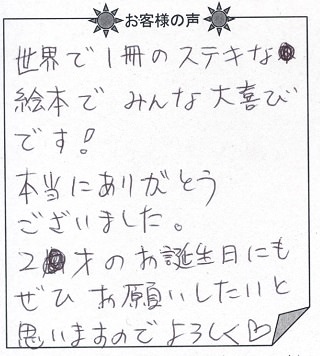 お客様の声
世界で1冊のステキな
絵本でみんな大喜び
です!
本当にありがとう
ございました。
2才のお誕生日にも
ぜひお願いしたいと
思いますのでよろしく